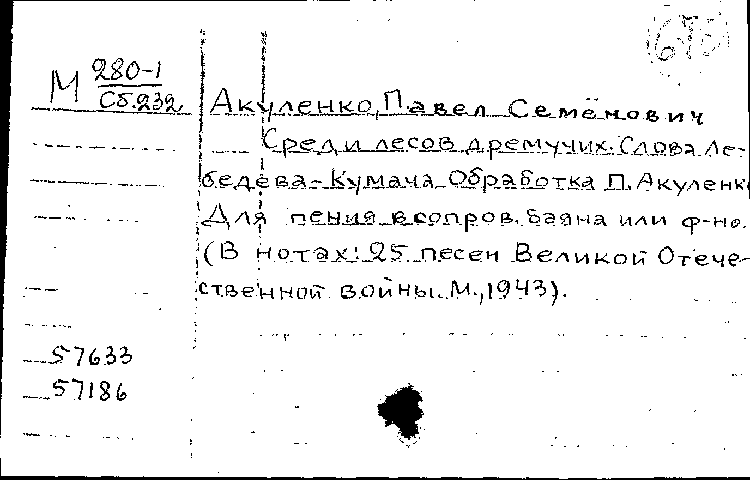 М 280-1
Сб.232
Акуленко, Павел Семёнович
Среди лесов дремучих. Слова Ле-
бедева-Кумача. Обработка П. Акуленк
Для пения в сопров. баяна или ф-но.
(В нотах: 25 песен Великой Отече-
ственной войны. М., 1943).
57633
57186